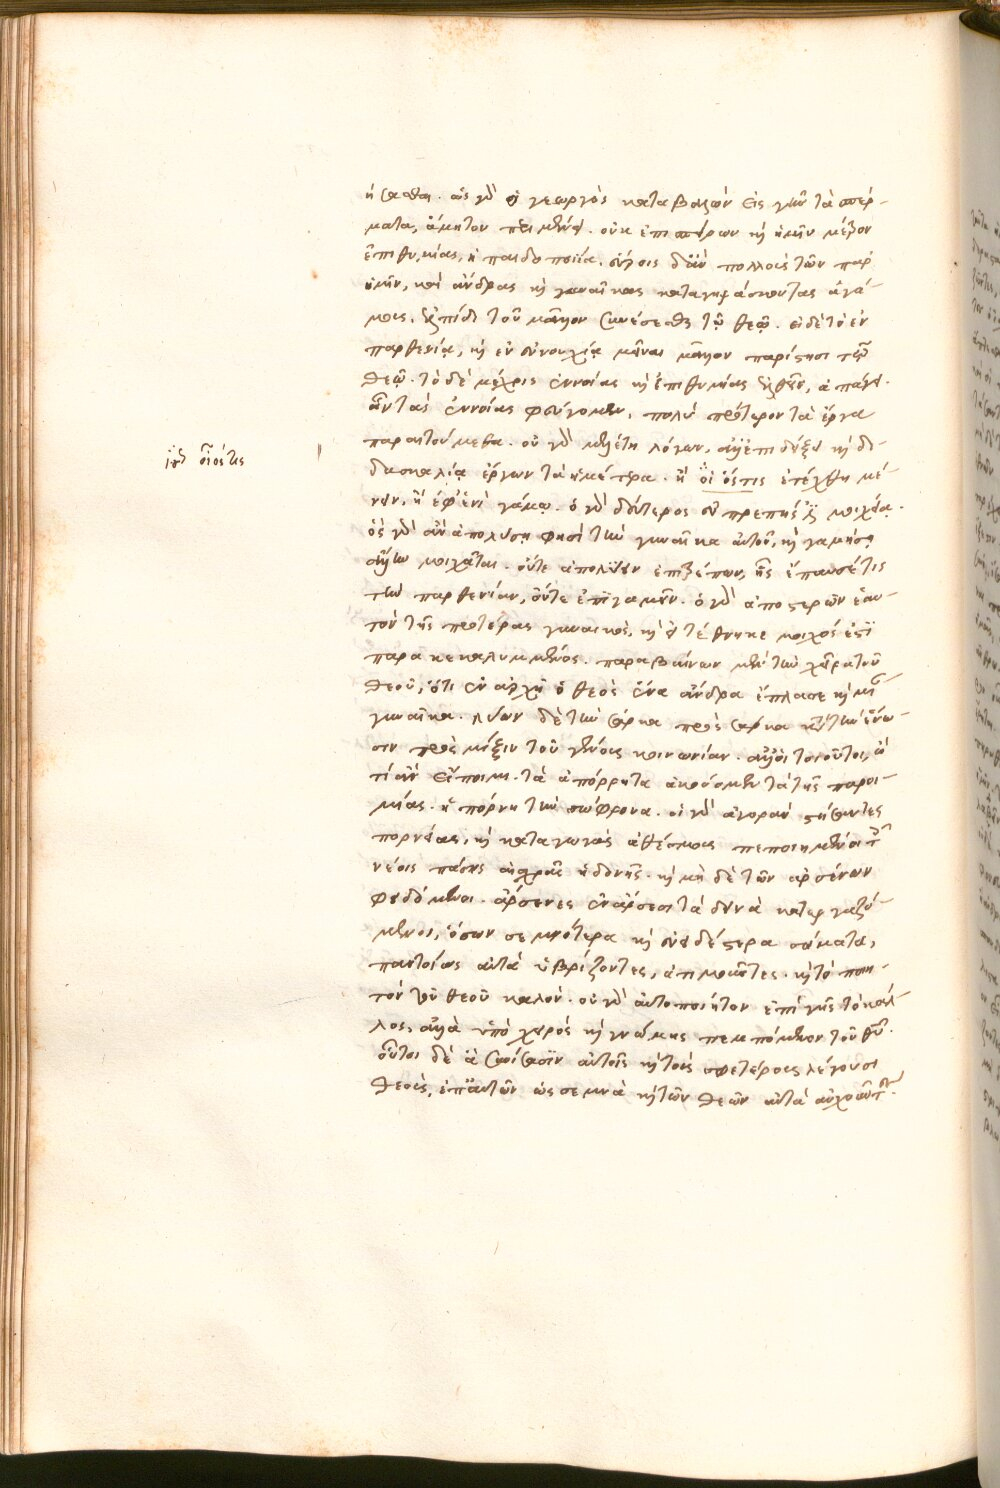 ήσασθαι. ὡς γὰρ ὁ γεωργὸς καταβαλὼν εἰς γῆν τὰ σπέρ-
ματα, ἄμητον περιμένει. οὐκ ἐπισπείρων καὶ ἡμῖν μέτρον
ἐπιθυμίας, ἡ παιδοποιΐα. εὕροις δ' ἂν πολλοὺς τῶν παρ'
ἡμῖν, καὶ ἄνδρας καὶ γυναῖκας καταγηράσκοντας ἀγά-
μους, ἐλπίδι τοῦ μᾶλλον συνέσεσθαι τῷ θεῷ. εἰ δὲ τὸ ἐν
παρθενίᾳ, καὶ ἐν εὐνουχίᾳ μεῖναι μᾶλλον παρίστησι τῷ
θεῷ. τὸ δὲ μέχρις ἐννοίας καὶ ἐπιθυμίας ἐλθεῖν, ἀπάγει.
ὧν τὰς ἐννοίας φεύγομεν, πολὺ πρότερον τὰ ἔργα
παραιτούμεθα. οὐ γὰρ μελέτη λόγων, ἀλλ' ἐπιδείξει καὶ δι-
ἴσ οἷός τις
δασκαλίᾳ ἔργων τὰ ἡμέτερα. ἢ οἷ ὅς τις ἐτέχθη μέ-
νειν, ἢ ἐφ' ἑνὶ γάμῳ. ὁ γὰρ δεύτερος εὐπρεπής ἐστι μοιχεία.
ὃς γὰρ ἂν ἀπολύσῃ φησὶ τὴν γυναῖκα αὐτοῦ, καὶ γαμήσῃ
ἄλλην μοιχᾶται. οὔτε ἀπολύειν ἐπιτρέπων, ἧς ἔπαυσέ τις
τὴν παρθενίαν, οὔτε ἐπιγαμεῖν. ὁ γὰρ ἀποστερῶν ἑαυ-
τὸν τῆς προτέρας γυναικός, καὶ εἰ τέθνηκε μοιχός ἐστι
παρακεκαλυμμένος. παραβαίνων μὲν τὴν χεῖρα τοῦ
θεοῦ, ὅτι ἐν ἀρχῇ ὁ θεὸς ἕνα ἄνδρα ἔπλασε καὶ μίαν
γυναῖκα. λύων δὲ τὴν σάρκα πρὸς σάρκα κατὰ τὴν ἕνω-
σιν πρὸς μίξιν τοῦ γένους κοινωνίαν. ἀλλ' οἱ τοιοῦτοι, ὢ
τί ἂν εἴποιμι. τὰ ἀπόρρητα ἀκούομεν τὰ τῆς παροι-
μίας. ἡ πόρνη τὴν σώφρονα. οἱ γὰρ ἀγορὰν στήσαντες
πορνείας, καὶ καταγωγὰς ἀθέσμους πεποιημένοι τοῖς
νέοις πάσης αἰσχρᾶς ἡδονῆς. καὶ μὴ δὲ τῶν ἀρσένων
φειδόμενοι. ἄρσενες ἐν ἄρσεσι τὰ δεινὰ κατεργαζό-
μενοι, ὅσων σεμνότερα καὶ εὐειδέστερα σώματα,
παντοίως αὐτὰ ὑβρίζοντες, ἀτιμοῦντες. καὶ τὸ ποιη-
τὸν τοῦ θεοῦ καλόν. οὐ γὰρ αὐτοποίητον ἐπὶ γῆς τὸ κάλ-
λος, ἀλλὰ ὑπὸ χειρὸς καὶ γνώμης πεμπόμενον τοῦ θεοῦ.
οὗτοι δὲ ἃ συνίσασιν αὑτοῖς καὶ τοὺς σφετέρους λέγουσι
θεούς, ἐπ' αὐτῶν ὡς σεμνὰ καὶ τῶν θεῶν αὐτὰ αὐχοῦντες.